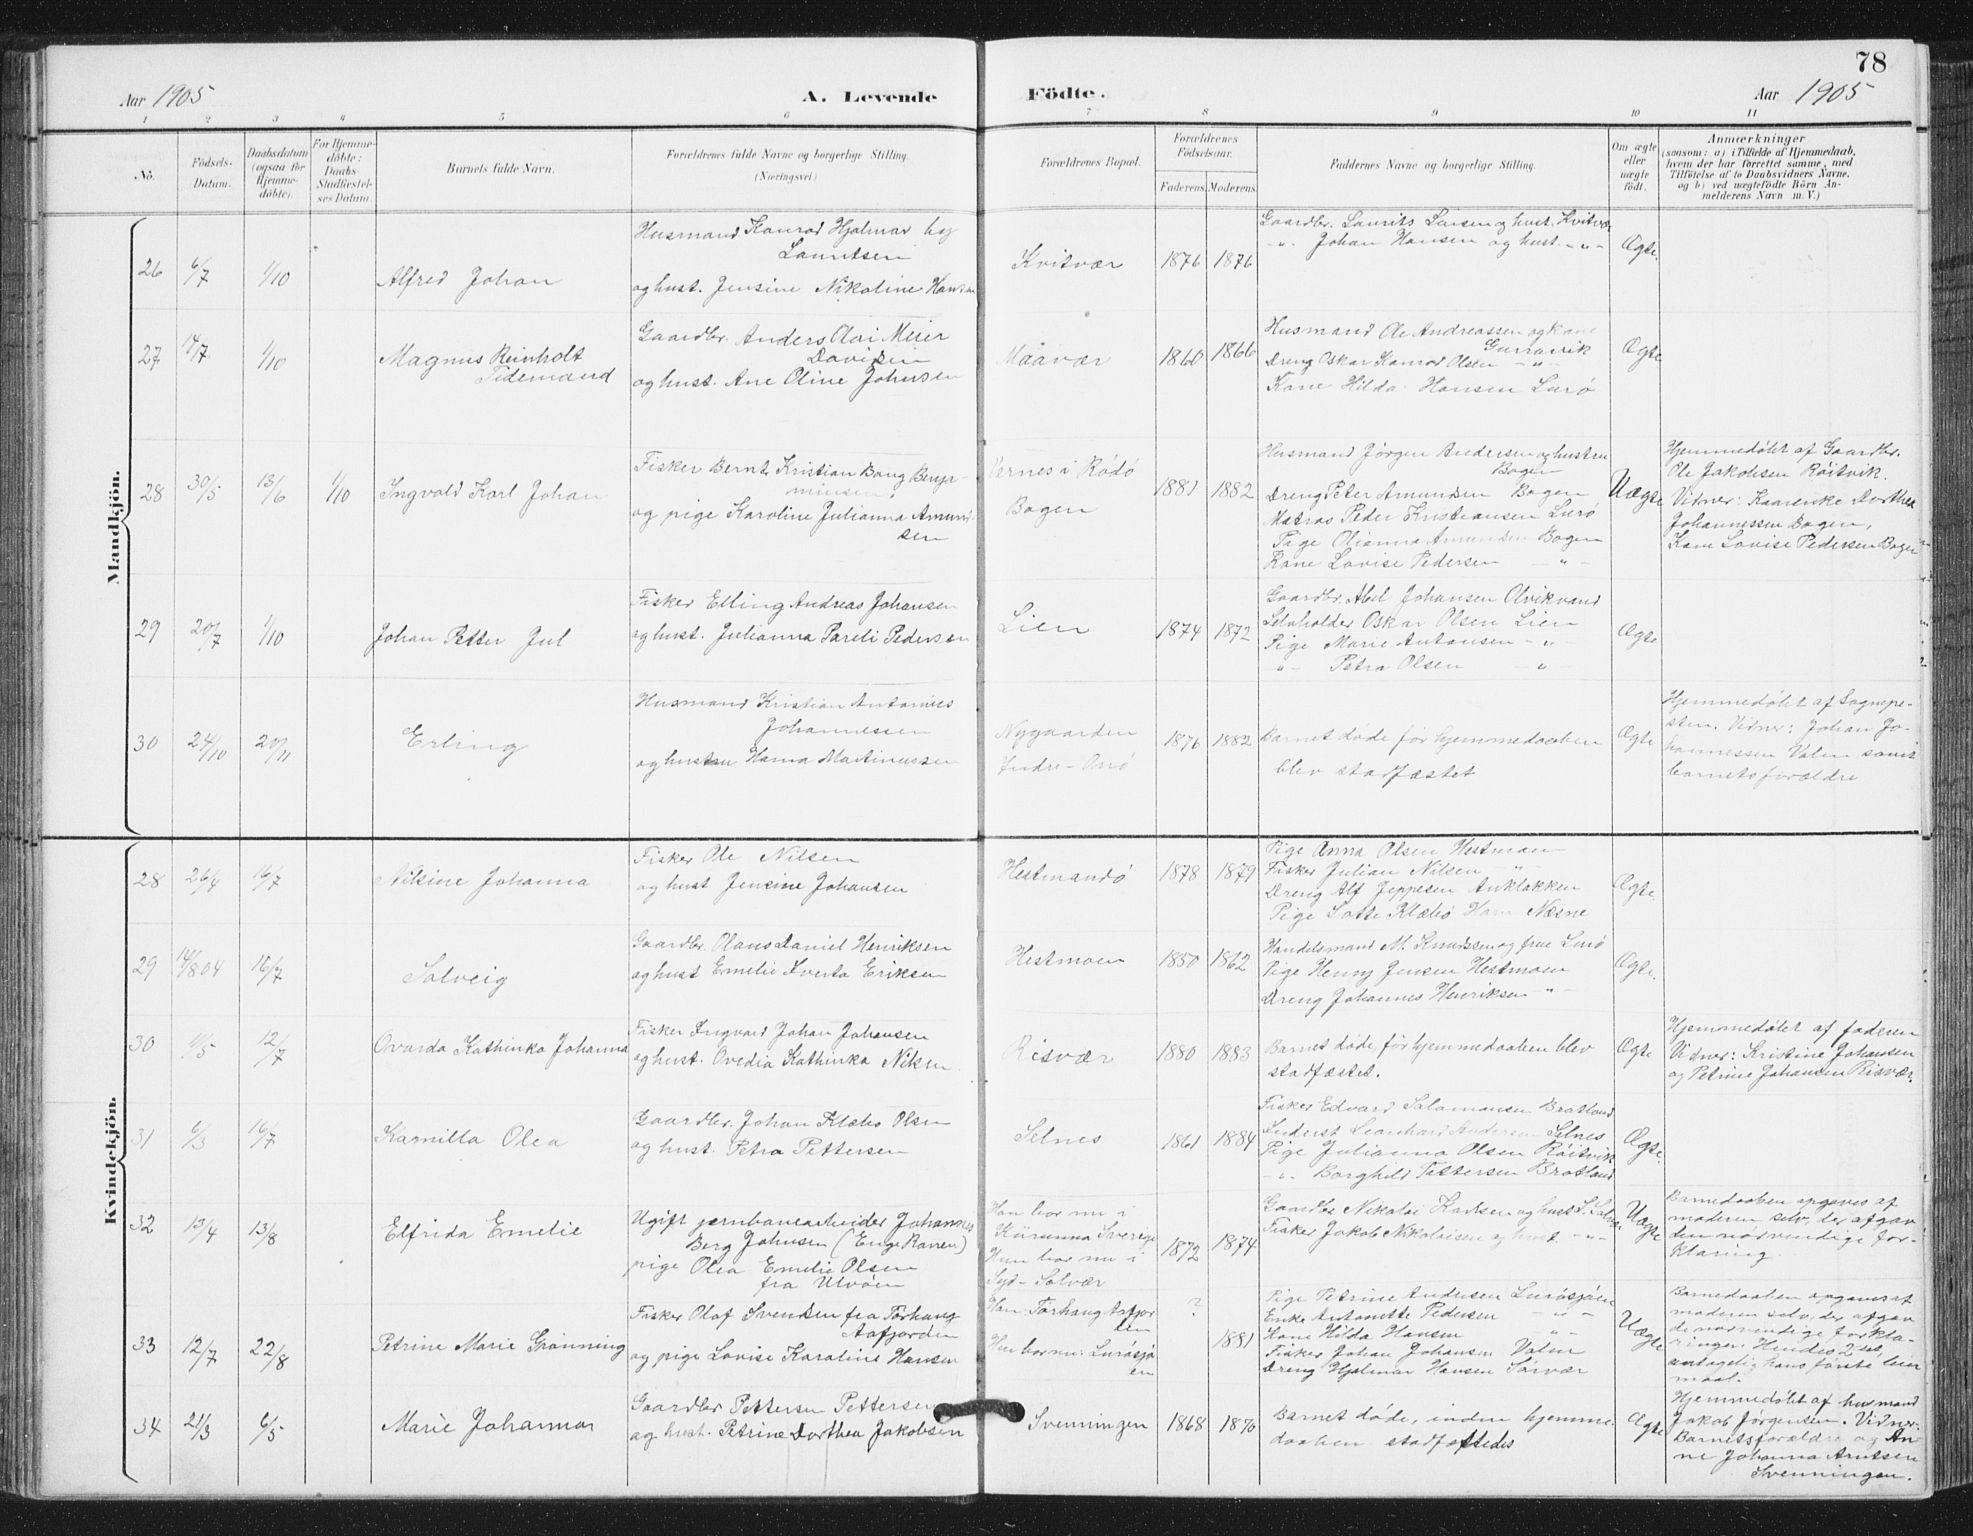 78
Aar 1905 A. Levende Födte. Aar 1905
1 2 3 4 5 6 7 8 9 10 11
No. Födsels-Datum. Daabsdatum (ogsaa for Hjemmedöbte). For Hjemmedöbte: Daabs-Stadfæstelses Datum. Barnets fulde Navn. Forældrenes fulde Navne og borgerlige Stilling. (Næringsvei) Forældrenes Bopæl. Forældrenes Födselsaar. Faderens. Moderens. Faddernes Navne og borgerlige Stilling. Om ægte eller uægte födt. Anmærkninger (saasom: a) i Tilfælde af Hjemmedaab, hvem der har forrettet samme, med Tilföielse af to Daabsvidners Navne. og b) ved uægtefödte Börn Anmelderens Navn m. V.)
Mandkjön.
26 6/7 1/10 Alfred Johan
Husmand Konrad Hjalmar
Lauritsen
og hust. Jensine Nikoline Hansen
Kvitvær 1876 1876
Gaardbr. Laurits Larsen og hust. Kvitvær
-"- Johan Hansen og hust. -"-
Ægte.
27 14/7 1/10 Magnus Reinholt
Tidemand
Gaardbr. Anders Olai Meier
Davidsen
og hust. Ane Oline Johnsen
Maavær 1860 1866
Husmand Ole Andreassen og kone
Dreng Oskar Konrad Olsen -"-
Kone Hilda Hansen Lurö
Ægte
28 30/5 13/6 1/10 Ingvald Karl Johan
Fisker Bernt Kristian Bang Benja-
minsen
og pige Karoline Julianna Amund-
sen
Vernes i Rödö
Bogen
1881 1882
Husmand Jörgen Andersen og hustru
Bogen
Dreng Peter Amundsen Bogen
Matros Peder Kristiansen Lurö
Pige Olianna Amundsen Bogen
Kone Lovise Pedersen -"-
Uægte
Hjemmedöbt af Gaardbr.
Ole Jakobsen Röitvik.
Vidner: Kaarenke Dorthea
Johannessen Bogen,
Kone Lovise Pedersen Bogen
29 20/7 1/10 Johan Petter Jul
Fisker Elling Andreas Johansen
og hust. Julianna Pareli Pedersen
Lien 1874 1872
Gaardbr. Abel Johansen Olvikvand
Selvholder Oskar Olsen Lien
Pige Marie Antonsen -"-
-"- Petra Olsen -"-
Ægte
30 24/10 20/11 Erling
Husmand Kristian Antonius
Johannessen
og hustru Hanna Martinussen
Nygaarden
Indre-Onö
1876 1882
Barnet döde för hjemmedaaben
blev stadfæstet
Ægte
Hjemmedöbt af Sognepre-
sten. Vidner: Johan Jo-
hannessen Valen samt
barnets forældre
Kvindekjön.
28 26/4 16/7 Nilsine Johanna
Fisker Ole Nilsen
og hust Jensine Johansen
Hestmandö 1878 1879
Pige Anna Olsen Hestman
Fisker Julian Nilsen "
Dreng Alf Jeppesen Anklakken
Pige Lotte Klæbö Næsne
Ægte.
29 14/8 04 16/7 Solveig
Gaardbr. Olaus Daniel Henriksen
og hust Emelie Sverta Eriksen
Hestmoen 1850 1862
Handelsmand M. Knudssen og frue Lurö
Pige Henny Jensen Hestmoen
Dreng Johannes Henriksen -"-
Ægte.
30 11/5 12/7 Ovarda Kathinka Johanna
Fisker Ingvard Johan Johansen
og hust. Ovedia Kathinka Nilsen
Risvær 1880 1883
Barnet döde för hjemmedaaben blev
stadfæstet.
Ægte
Hjemmedöbt af faderen
Vidner: Kristine Johansen
og Petrine Johansen Risvær.
31 6/3 16/7 Kamilla Olea
Gaardbr. Johan Klæbo Olsen
og hust. Petra Pettersen
Selnes 1861 1884
Fisker Edvard Salamonsen Bratland
Inderst Leonhard Andersen Selnes
Pige Julianna Olsen Röitvik
-"- Borghild Pettersen Bratland
Ægte.
32 13/4 13/8 Elfrida Emelie
Ugift jernbanearbeider Johannes
Berg Johnsen (Enge Ranen)
pige Olea Emelie Olsen
fra Ulvöen
Han bor nu i
Kiirunna Sverige
Hun bor nu i
Syd-Solvær
1872 1874
Gaardbr Nikolai Karlsen og hust S. Solvær
Fisker Jakob Nikolaisen og hust -"-
Uægte
Barnedaaben opgaves af
moderen selv, der afgav
den nödvendige for-
klaring.
33 12/7 22/8 Petrine Marie Grönning
Fisker Olaf Svendsen fra Torhaug
Aafjorden
og pige Lovise Karoline Hansen
Han: Torhaug Aafjor
den
Hun bor nu: Lurösjö
en
? 1881
Pige Petrine Andersen Lurösjöen
Enke Antonette Pedersen -"-
Kone Hilda Hansen -"-
Fisker Johan Johansen Valen
Dreng Hjalmar Hansen Sörvær
Uægte
Barnedaaben opgaves af
moderen selv, der afgav
de nödvendige forkla-
ringer. Hendes 2det,
antagelig hans förste leier
maal.
34 21/3 6/5 Marie Johannas
Gaardbr Pettersen Pettersen
og hust. Petrine Dorthea Jakobsen
Svenningen 1868 1870
Barnet döde, inden hjemme-
daaben stadfæstedes
Ægte
Hjemmedöbt af husmand
Jakob Jörgensen. Vidner:
Barnets forældre og An-
ne Johanna Arntsen
Svenningen.